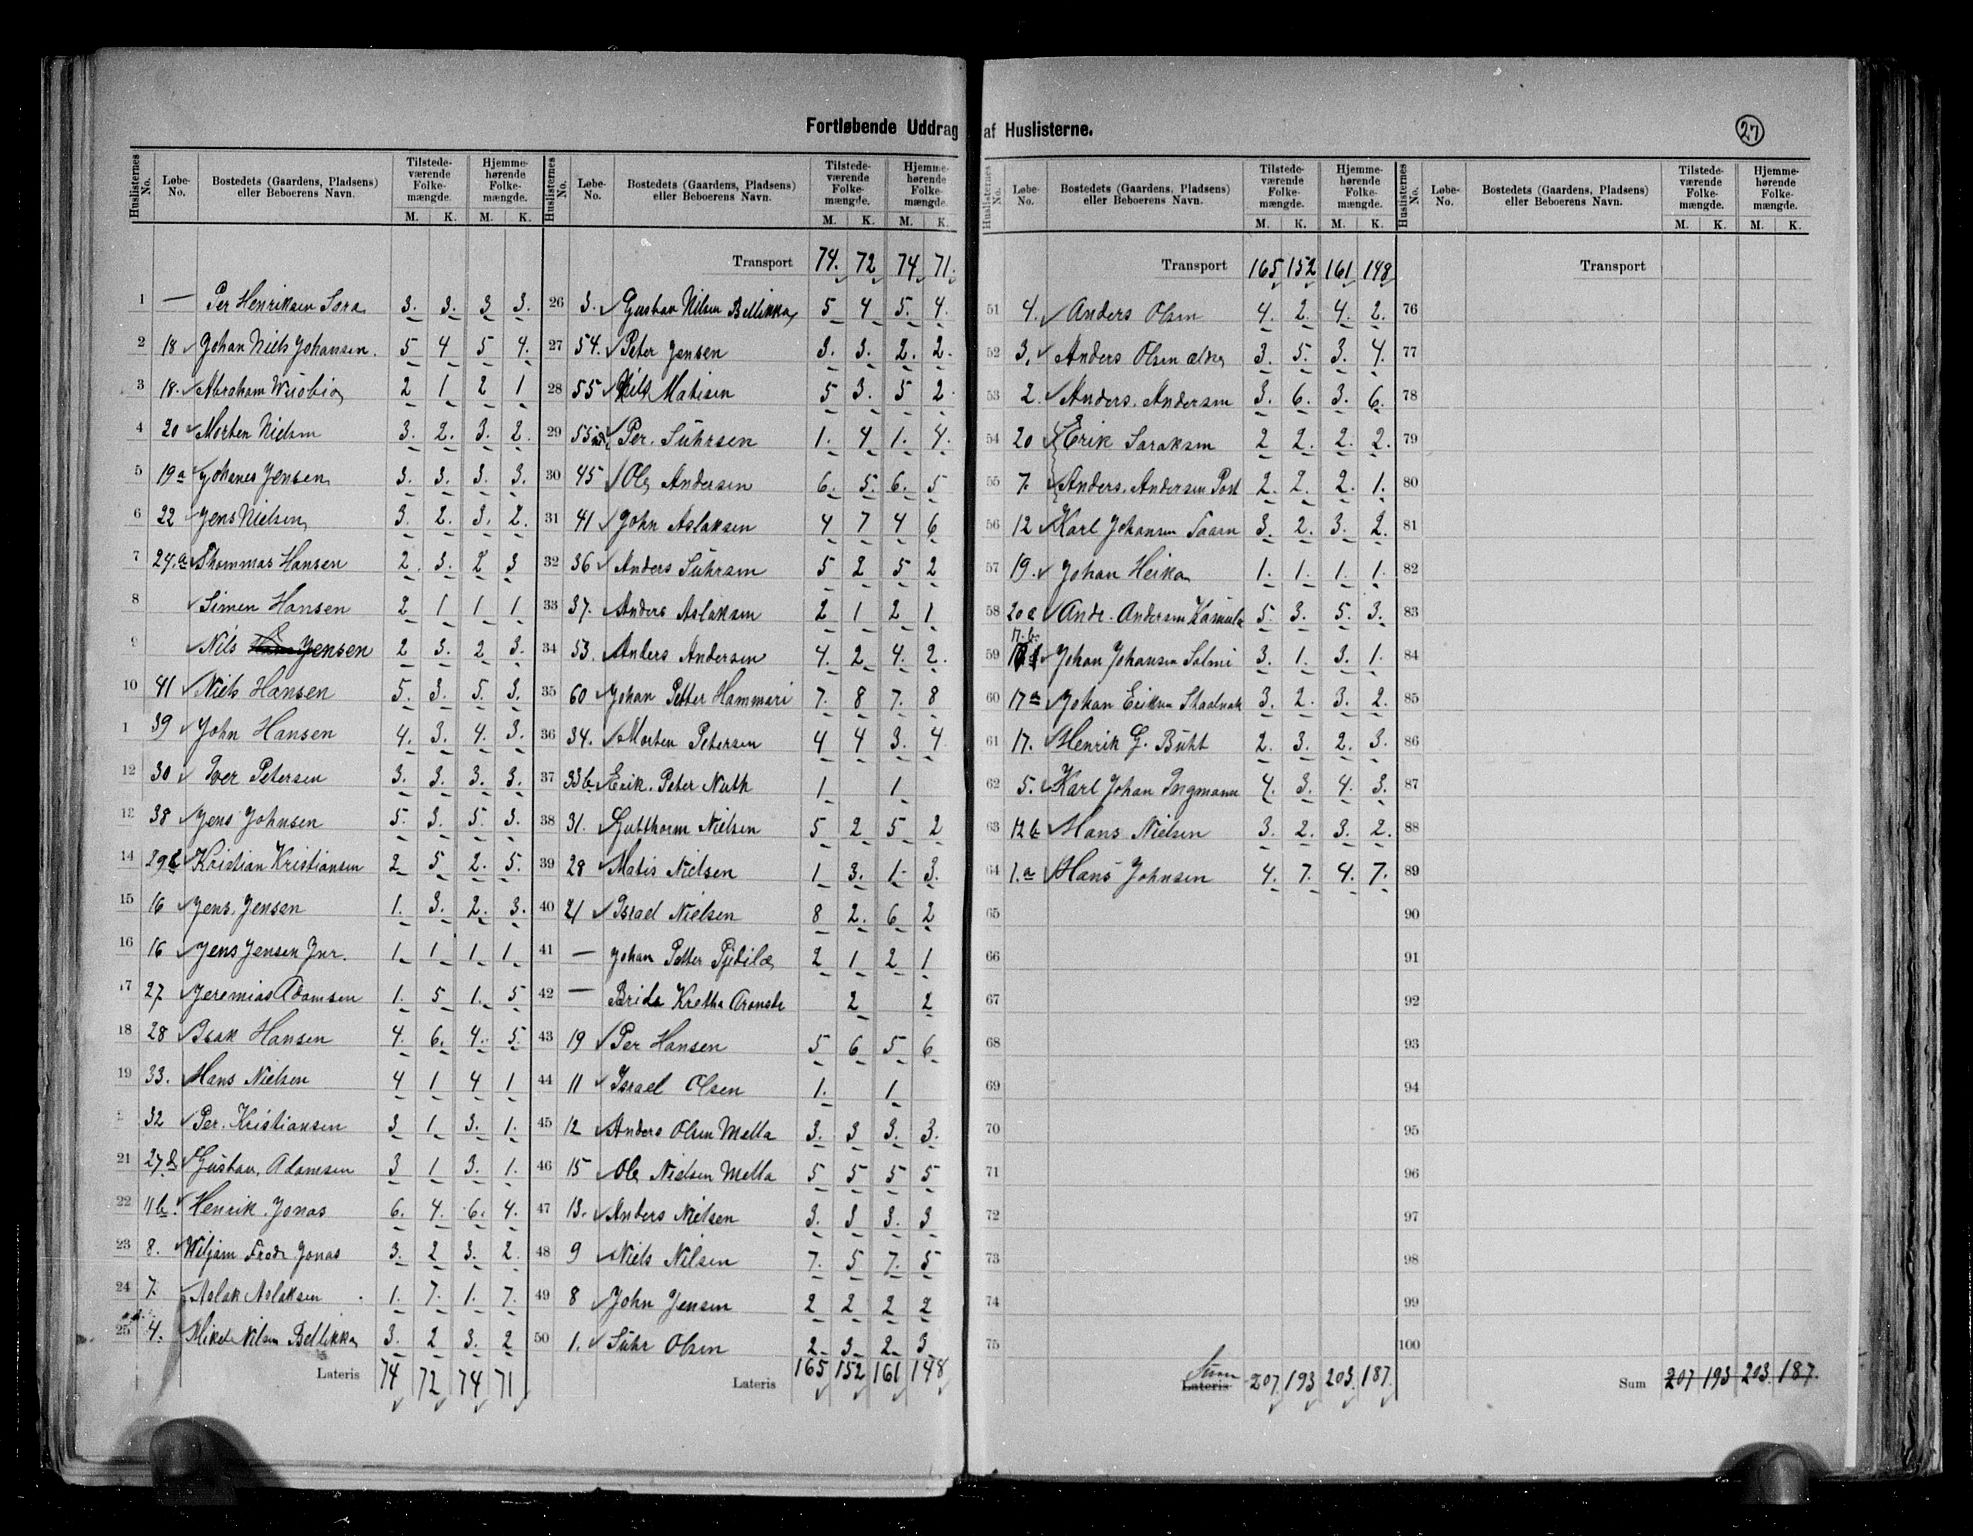 Fortløbende Uddrag af Huslisterne.
27
Huslisternes No. Løbe-No. Bostedets (Gaardens, Pladsens) eller Beboerens Navn. Tilstedeværende Folkemængde. M. K. Hjemmehørende Folkemængde. M. K.
1 — Per Henriksen Sara 3. 3. 3 3.
2 18 Johan Niels Johansen. 5 4 5 4.
3 18. Abraham 2 1 2 1
4 20 Morten Nielsen 3. 2. 3. 2.
5 19a Johanes Jensen 3. 3. 3. 3.
6 22 Jens Nielsen 3. 2. 3. 2.
7 24.a Thommas Hansen 2. 3. 2 3
8 Simen Hansen 2 1 1 1
9 Nils Jensen 2 3. 2 3.
10 41 Niels Hansen 5. 3. 5. 3.
1 39 John Hansen 4. 3. 4. 3.
12 30 Iver Petersen 3. 3. 3. 3.
13 38 Jens Johnsen 5. 3. 5. 3.
14 Kristian Kristiansen 2 5 2. 5.
15 16 Jens. Jensen 1. 3. 2. 3.
16 16 Jens Jensen Jnr. 1 1 1 1
17 27 Jeremias Adamsen 1. 5 1. 5
18 28 Isak Hansen 4. 6. 4. 5.
19 33. Hans Nielsen 4 1 4 1
32 Per. Kristiansen 3 1 3. 1.
21 27b Gustav. Adamsen 3 1 3. 1.
22 11b. Henrik. Jonas 6. 4. 6. 4.
23 8. Wiljam Fredr Jonas 3. 2 3. 2.
24 7. Aslak Aslaksen 1. 7. 1. 7.
25 4. Mikel Nilsen Bellikka 3. 2 3. 2
Lateris 74 72 74 71
Transport 74. 72 74 71.
26 3. Gustav Nilsen Bellikka 5 4 5. 4.
27 54. Peter Jensen 3. 3. 2. 2.
28 55 Nils Matisen 5 3. 5 2
29 Per. Suhrsen 1. 4 1. 4.
30 45 Ole Andersen 6. 5. 6. 5
31 41 John Aslaksen 4 7 4 6
32 36 Anders Suhrsen 5 2 5 2
33 37. Anders Aslaksen 2 1 2 1
34 53. Anders Andersen 4. 2 4. 2.
35 60 Johan Petter Hammari 7. 8 7. 8
36 34. Morten Petersen 4 4 3. 4
37 33b Erik. Peter Nuth 1 1
38 31. Gutthorm Nielsen 5 2 5 2
39 28 Matis Nielsen 1 3. 1. 3.
40 21 Israel Nielsen 8 2. 6 2
41 — Johan Petter 2 1 2 1
42 — Brida Kretha 2 2
43 19 Per Hansen 5 6 5 6
44 11 Israel Olsen 1. 1
45 12 Anders Olsen Mella 3. 3 3. 3.
46 15 Ole Nielsen Mella 5 5 5 5
47 13. Anders Nielsen 3. 3 3. 3
48 9 Niels Nilsen 7. 5 7. 5
49 8 John Jensen 2 2 2 2
50 1. Suhr Olsen 2 3 2. 3
Lateris 165 152 161 148
Huslisternes No. Løbe-No. Bostedets (Gaardens, Pladsens) eller Beboerens Navn. Tilstedeværende Folkemængde. M. K. Hjemmehørende Folkemængde. M. K.
Transport 165 152 161 148
51 4. Anders Olsen 4. 2. 4. 2.
52 3. Anders Olsen ældre 3. 5. 3. 4.
53 2. Anders. Andersen 3. 6. 3. 6.
54 20 Erik Saraksen 2 2. 2. 2.
55 7. Anders. Andersen Post 2. 2. 2. 1.
56 12 Karl Johansen 3. 2. 3. 2.
57 19. Johan Heika 1. 1. 1. 1.
58 20a Andr. Andersen 5. 3. 5. 3.
59 17.b. Johan Johansen Salmi 3. 1. 3. 1.
60 17a Johan Eriksen 3. 2. 3. 2.
61 17. Henrik G. Buht 2. 3. 2. 3.
62 5. Karl Johan Ingmann 4. 3. 4. 3.
63 12b Hans. Nielsen 3. 2. 3. 2.
64 1.a Hans Johnsen 4. 7. 4. 7.
65
66
67
68
69
70
71
72
73
74
75
Sum Lateris 207 193 203. 187.
Transport
76
77
78
79
80
81
82
83
84
85
86
87
88
89
90
91
92
93
94
95
96
97
98
99
100
Sum 207 193 203. 187.